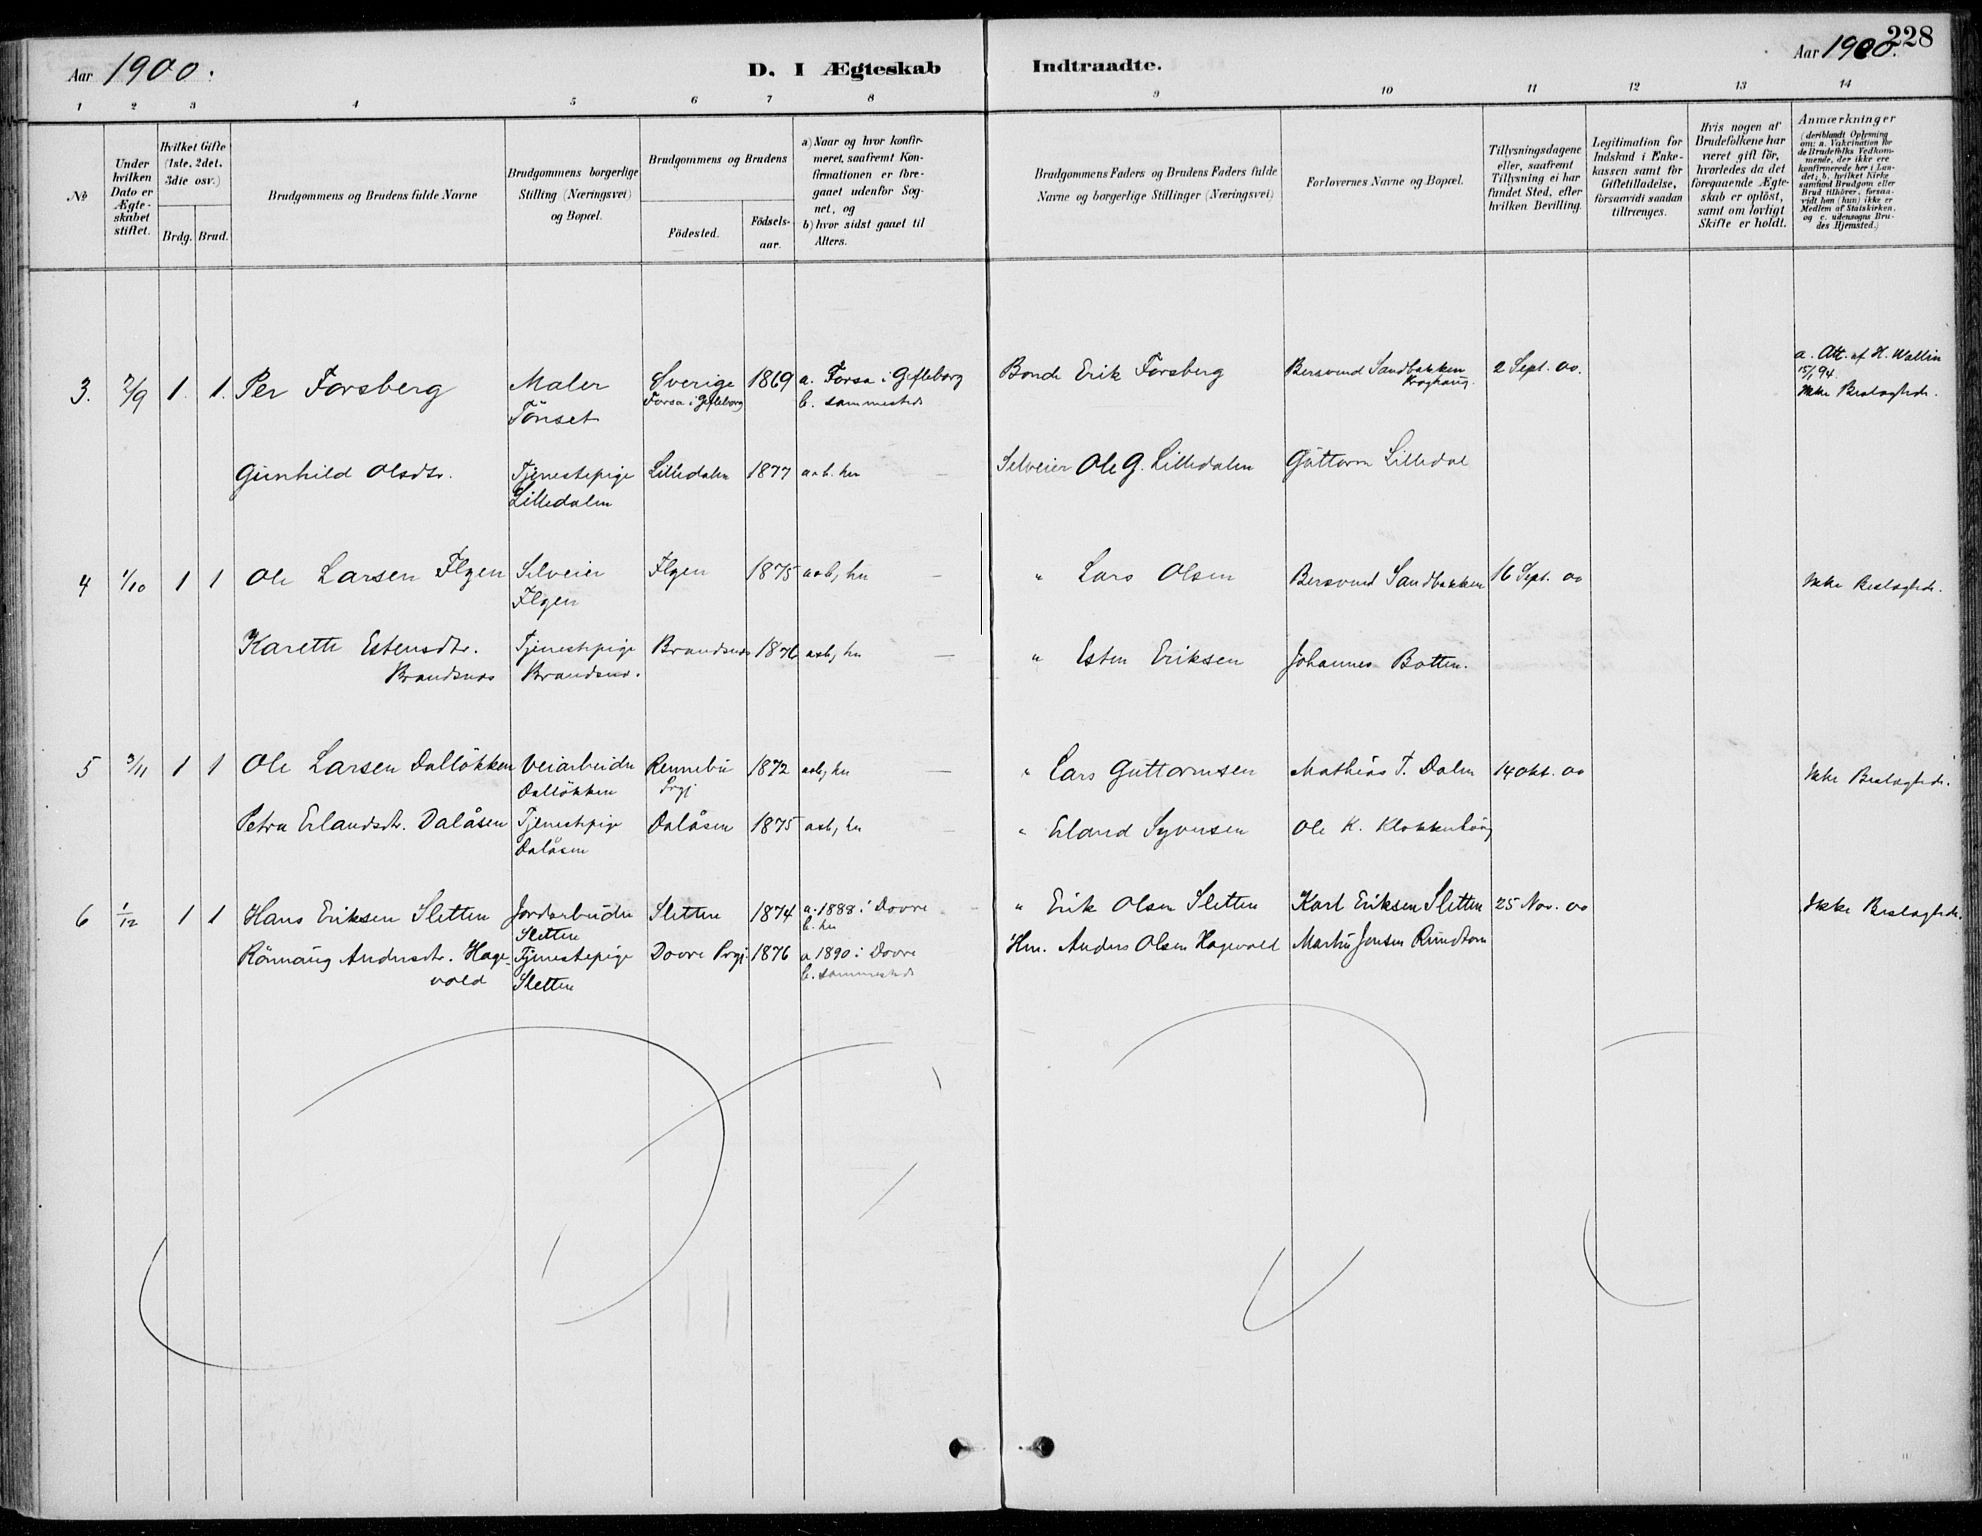 Aar 1900.
D. I Ægteskab Indtraadte.
Aar 1900.
228
1 2 3 4 5 6 7 8 9 10 11 12 13 14
№
Under hvilken Dato er Ægteskabet stiftet.
Hvilket Gifte (1ste, 2det, 3die osv.)
Brdg. Brud.
Brudgommens og Brudens fulde Navne
Brudgommens borgerlige Stilling (Næringsvei) og Bopæl.
Brudgommens og Brudens
Födested.
Födsels-aar.
a) Naar og hvor konfir-
meret, saafremt Kon-
firmationen er fore-
gaaet udenfor Sog-
net, og
b) hvor sidst gaaet til
Alters.
Brudgommens Faders og Brudens Faders fulde
Navne og borgerlige Stillinger (Næringsvei)
Forlovernes Navne og Bopæl.
Tillysningsdagene
eller, saafremt
Tillysning ei har
fundet Sted, efter
hvilken Bevilling.
Legitimation for
Indskud i Enke-
kassen samt for
Giftetilladelse,
forsaavidt saadan
tiltrænges.
Hvis nogen af
Brudefolkene har
været gift för,
hvorledes da det
foregaaende Ægte-
skab er oplöst,
samt om lovligt
Skifte er holdt.
Anmærkninger
(deriblandt Oplysning
om: a. Vakcination for
de Brudefolks Vedkom-
mende, der ikke ere
konfirmerede her i Lan-
det, b. hvilket Kirke
samfund Brudgom eller
Brud tilhörer, forsaa-
vidt han (hun) ikke er
Medlem af Statskirken,
og c. udensogns Bru-
des Hjemsted.)
3. 2/9 1. 1. Per Forsberg Maler Tönset Sverige Forsa i Gefleborg 1869 a. Forsa i Gefleborg b. sammesteds Bonde Erik Forsberg Bersvend Sandbakken Kroghaug. 2 Sept. 00. a. Att. af H. Wallin 15/1 94. Ikke Beslægtede.
Gunhild Olsdtr. Tjenestepige Lilledalen Lilledalen 1877 a o b. her Selveier Ole G. Lilledalen Guttorm Lilledal
4 1/10 1 1 Ole Larsen Flgen Selveier Flgen Flgen 1875 aob, her " Lars Olsen Bersvend Sandbakken 16 Sept. 00 Ikke Beslægtede.
Karette Estensdtr. Brandsnes Tjenestepige Brandsnes. Brandsnes 1876 aob, her " Esten Eriksen Johannes Botten.
5 3/11 1 1 Ole Larsen Dallökken Veiarbeider Dallökken Rennebu Prgj 1872 aob, her " Lars Guttormsen Mathias T. Dalen 14 Okt. 00 Ikke Beslægtede.
Petra Erlandsdtr. Dalåsen Tjenestepige Dalåsen Dalåsen 1875 aob, her " Erland Syversen Ole K. Klokkerhaug
6 1/12 1 1 Hans Eriksen Sletten Jordarbeider Sletten Sletten 1874 a. 1888 i Dovre b. her " Erik Olsen Sletten Karl Eriksen Sletten 25 Nov. 00 Ikke Beslægtede.
Rönnaug Andersdtr. Hage-vold Tjenestepige Sletten Dovre Prgj. 1876 a 1890 i Dovre b. sammesteds Hm. Anders Olsen Hagevold Martin Jonsen Rundtom